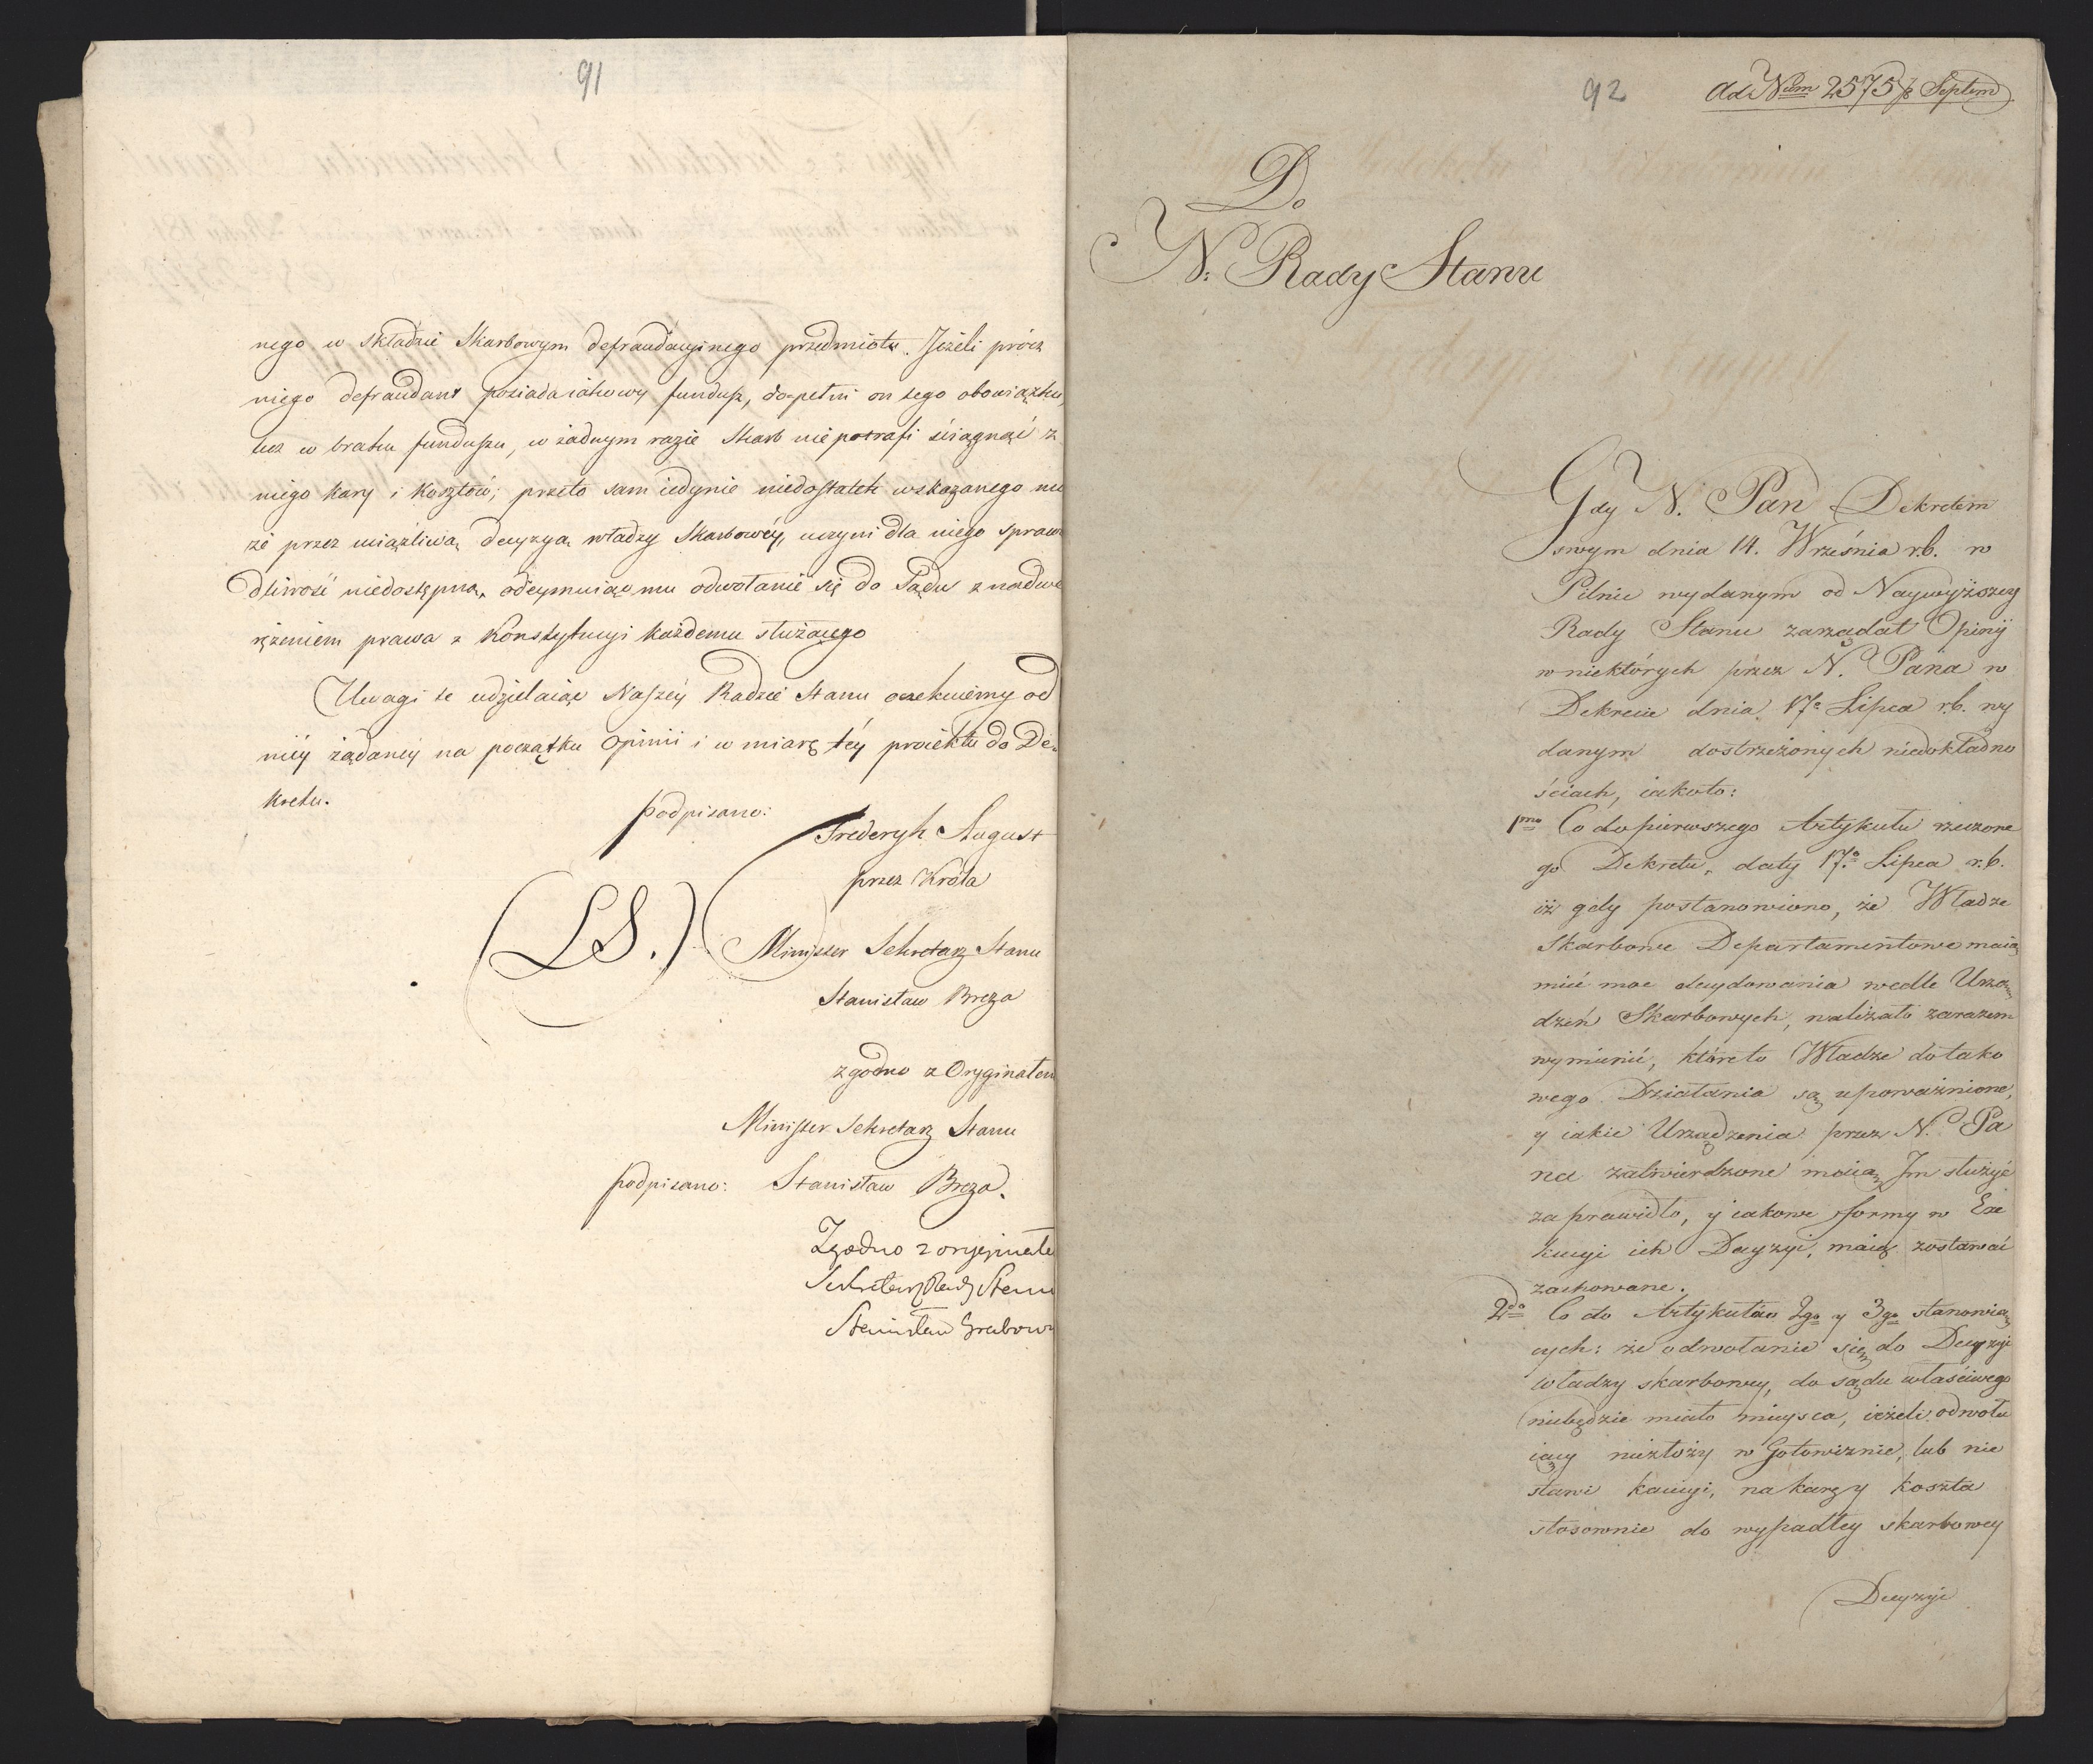 91
nego w składzie Skarbowym defraudacyinego przedmiotu. Jeżeli prócz
niego defraudant posiada iakowy fundusz, dopełni on tego obowiązku,
lecz w braku funduszu, w żadnym razie Skarb nie potrafi ściągnąć z
niego kary i kosztów; przeto sam iedynie niedostatek wskazanego mu
że przez uciążliwą decyzyą władzy Skarbowéy, uczyni dla niego sprawie
dliwość niedostępną, odeymuiąc mu odwołanie się do Sądu z nadwe
rężeniem prawa z Konstytucyi każdemu służącego
Uwagi te udzielaiąc Naszéy Radzie Stanu oczekuiemy od
niéy żądanéy na początku opinii i w miarę téy proiektu do De-
kretu.
podpisano:
Frederyk August
przez Króla
(LS.)
Minister Sekretarz Stanu
Stanisław Breza
zgodno z Oryginałem
Minister Sekretarz Stanu
podpisano: Stanisław Breza.
Zgodno z oryginałe
Sekretarz Rady Stanu
Stanisław Grabows
92
Ad Num 2575 Septem
Do
N: Rady Stanu
Gdy N. Pan Dekretem
swym dnia 14. Września r.b. w
Pilnic wydanym od Naywyższey
Rady Stanu zarządał Opinÿ
w niektórych przez N. Pana w
Dekrecie dnia 17o Lipca r.b. wy
danym dostrzeżonych niedokładno
ściach, iakoto:
1mo Co do pierwszego Artykułu rzeczone
go Dekretu, daty 17o Lipca r.b.
iż gdy postanowiono, że Władze
Skarbowe Departamentowe maią
mieć moc decydowania wedle Urzą
dzeń Skarbowych, należało zarazem
wymienić, któreto Władze do tako
wego Działania są upoważnione,
y iakie Urządzenia przez N. Pa
na zatwierdzone maią Jm służyć
za prawidło, y iakowe formy w Exe
kucyi ich Decyzyi, maią zostawać
zachowane.
2do Co do Artykułów 2go y 3go stanowią
cych: że odwołanie się do Decyzyi
władzy skarbowey, do sądu właściwego
niebędzie miało mieysca, ieżeli odwołu
iący niezłoży w Gotowiznie, lub nie
stawi kaucyi, na karę y koszta
stosownie do wypadłey skarbowey
Decyzyi